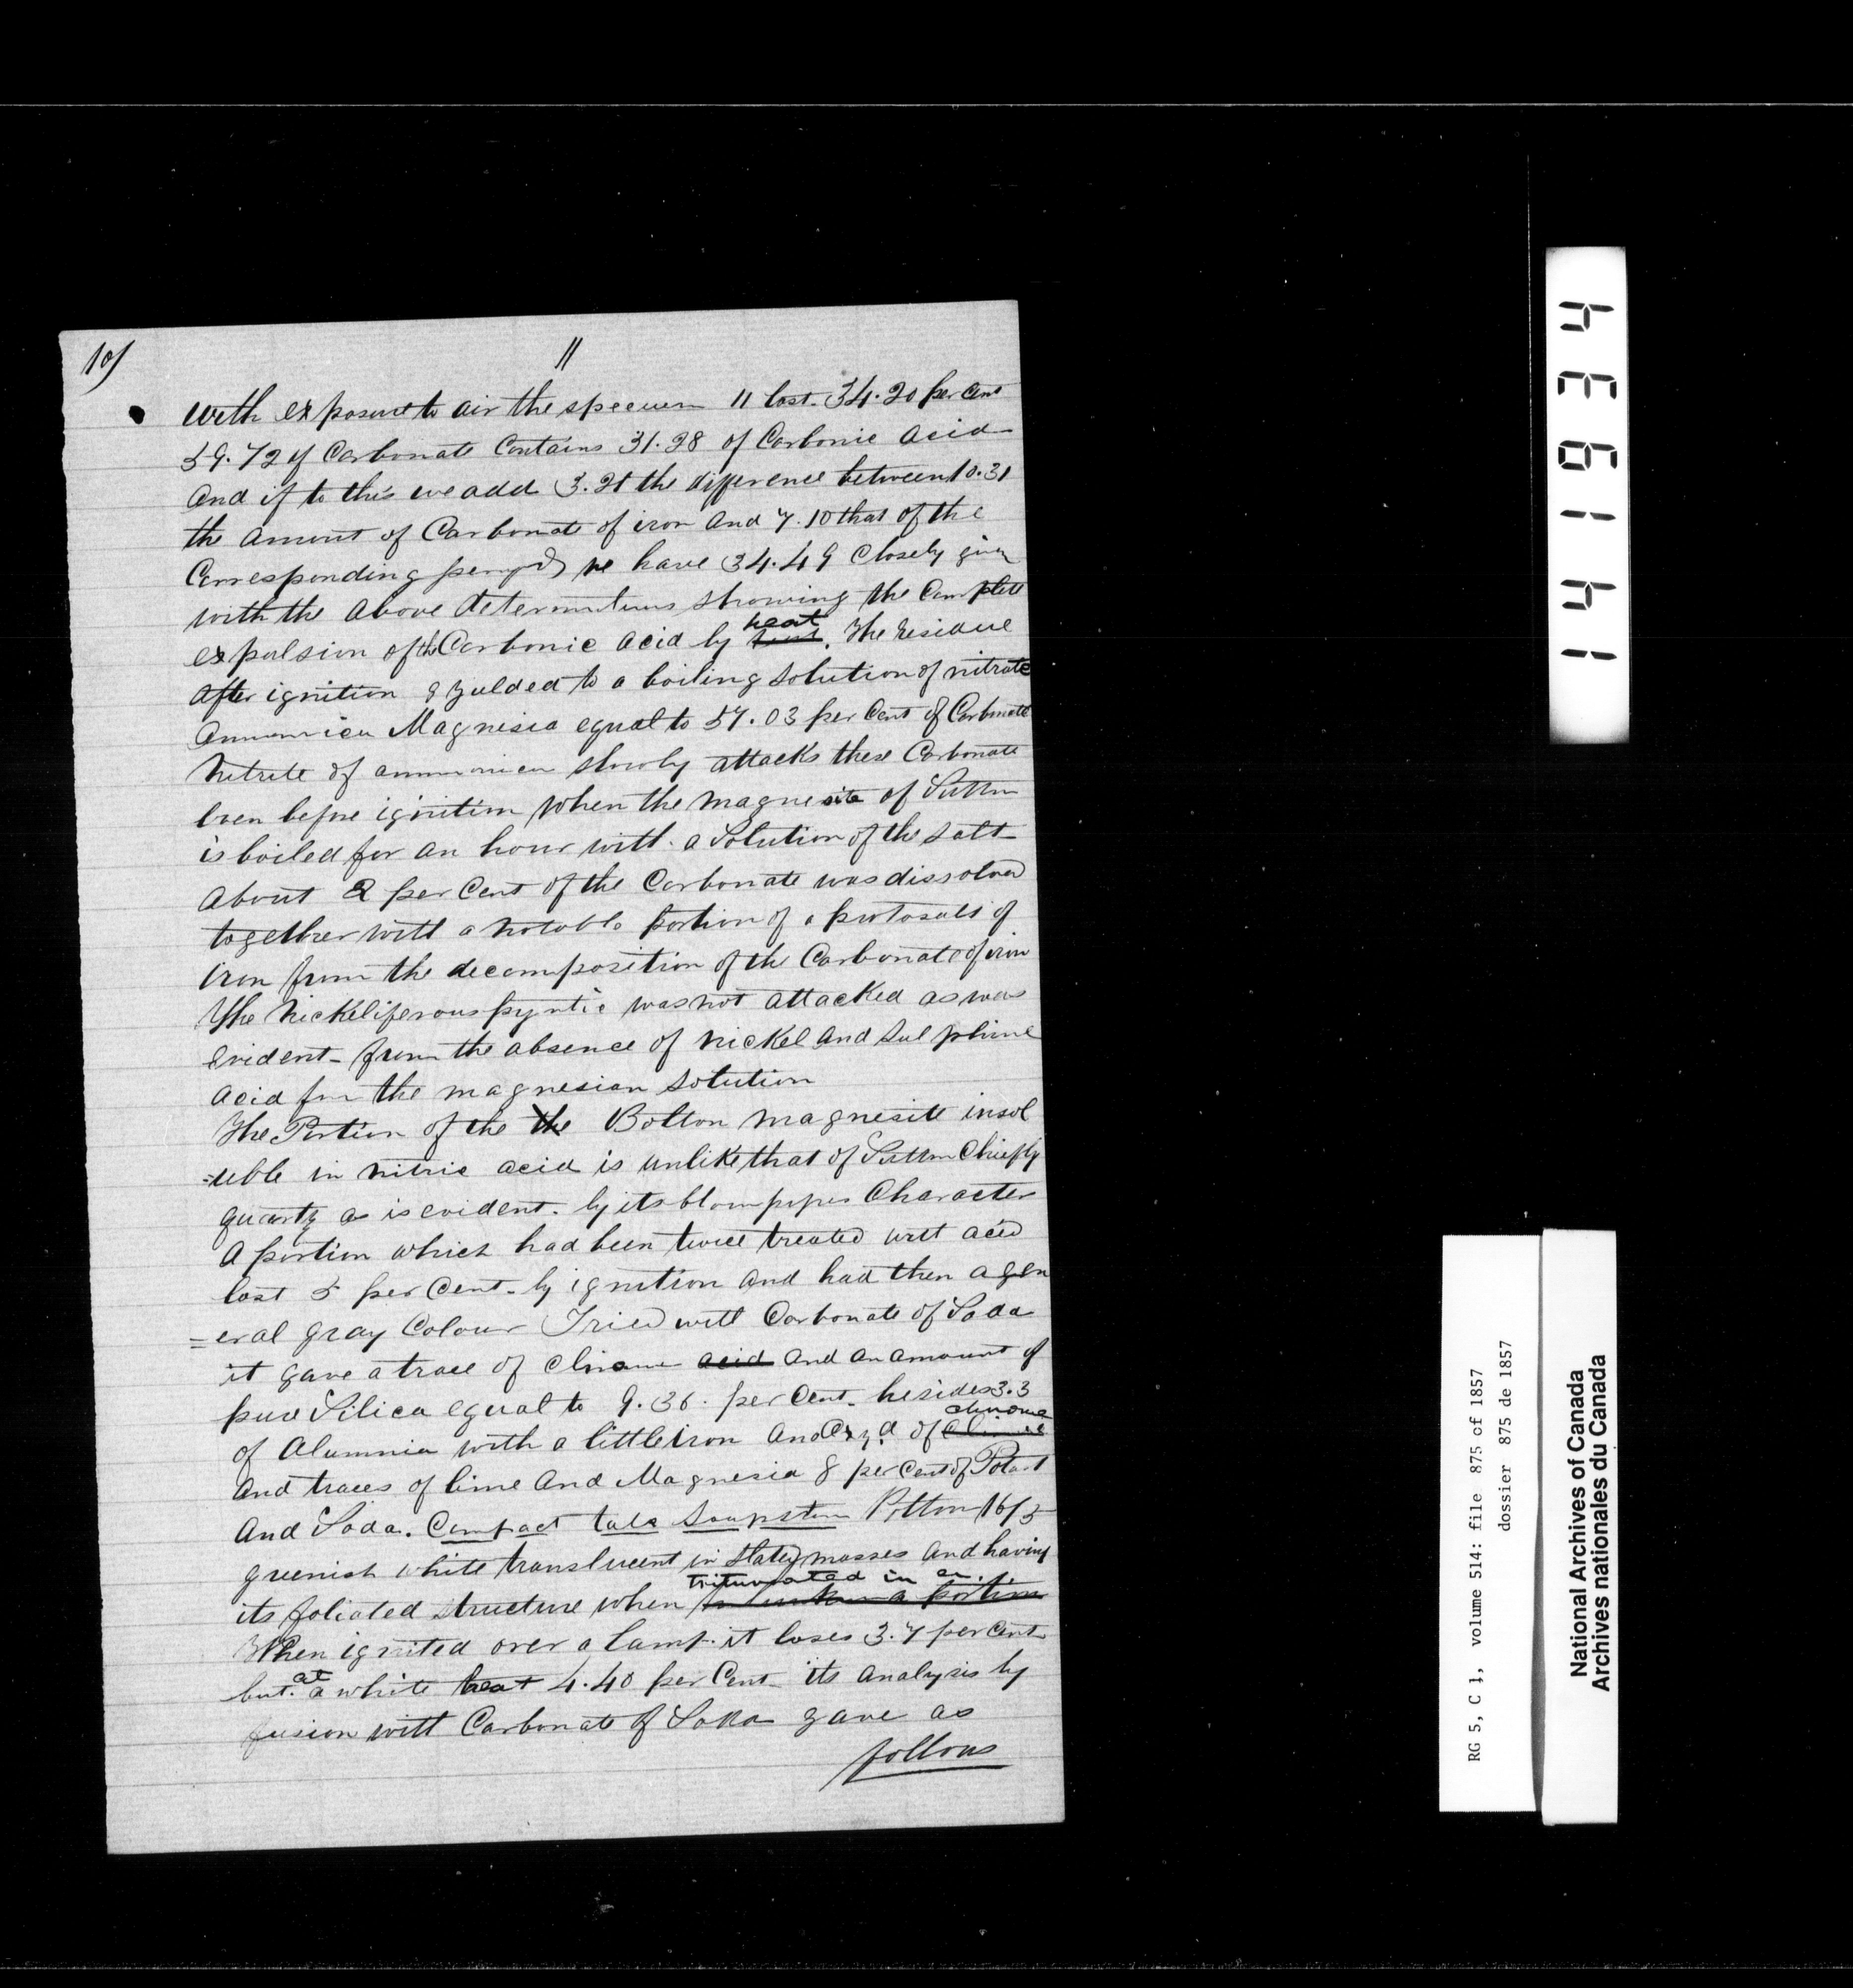 10/
11
with exposure to air the specimen 11 lost 34.20 per cent
59.72 of Carbonate Contains 31.28 of Carbonic acid
and if to this we add 3.21 the difference between 10.31
the amount of Carbonate of iron and 7.10 that of the
Corresponding we have 34.49 Closely
with the above showing the Complete
expulsion of the Carbonic acid by heat. The residue
after ignition yielded to a boiling solution of nitrate
Ammonica Magnesia equal to 57.03 per Cent of Carbonate
Nitrate of ammonica slowly attacks these Carbonate
even before ignition when the magnesite of Sutton
is boiled for an hour with a Solution of the Salt
about 2 per Cent of the Carbonate was dissolved
together with a notable portion of a protosalt of
iron from the decomposition of the Carbonate of iron
The Nickeliferous was not attacked as was
evident from the absence of nickel and sulphuric
acid from the magnesian solution
The Portion of the the Bolton magnesite insol
=uble in nitric acid is unlike that of Sutton Chiefly
quartz as is evident by its blowpipes Character
A portion which had been twice treated with acid
lost 5 per Cent by ignition and had then a gen
=eral gray Colour Tried with Carbonate of Soda
it gave a trace of chrome acid and an amount of
pure Silica equal to 9.36 per Cent besides 3.3
of Alumnia with a little iron and Oxyd of chrome
and traces of lime and Magnesia 8 per Cent of Potart
and Soda. Compact talc Soapstone Potton 16/5
greenish white translucent in slaty masses and having
its foliated structure when triturated in a
When ignited over a lamp it loses 3.7 per cent
but at a white heat 4.40 per Cent its analysis by
fusion with Carbonate of Soda gave as
follows
141934
RG 5, C 1, volume 514: file 875 of 1857
dossier 875 de 1857
National Archives of Canada
Archives nationales du Canada